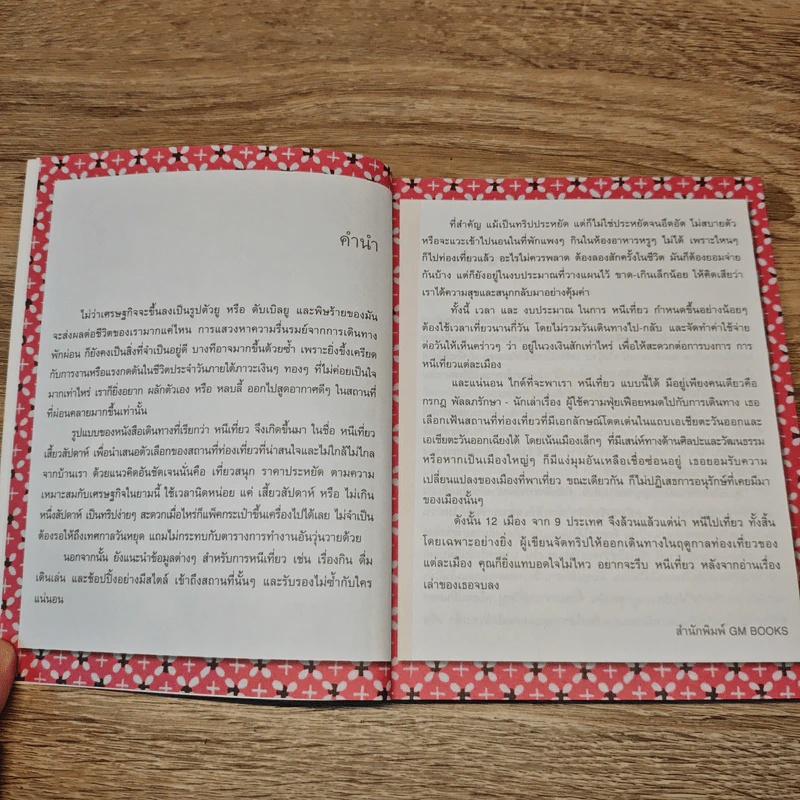 คำนำ
ไม่ว่าเศรษฐกิจจะขึ้นลงเป็นรูปตัวยู หรือ ดับเบิลยู และพิษร้ายของมัน
จะส่งผลต่อชีวิตของเรามากแค่ไหน การแสวงหาความรื่นรมย์จากการเดินทาง
พักผ่อน ก็ยังคงเป็นสิ่งที่จำเป็นอยู่ดี บางทีอาจมากขึ้นด้วยซ้ำ เพราะยิ่งขึ้งเครียด
กับการงานหรือแรงกดดันในชีวิตประจำวันภายใต้ภาวะเงินๆ ทองๆ ที่ไม่ค่อยเป็นใจ
มากเท่าไหร่ เราก็ยิ่งอยาก ผลักตัวเอง หรือ หลบลี้ ออกไปสูดอากาศดีๆ ในสถานที่
ที่ผ่อนคลายมากขึ้นเท่านั้น
รูปแบบของหนังสือเดินทางที่เรียกว่า หนีเที่ยว จึงเกิดขึ้นมา ในชื่อ หนีเที่ยว
เสี้ยวสัปดาห์ เพื่อนำเสนอตัวเลือกของสถานที่ท่องเที่ยวที่น่าสนใจและไม่ใกล้ไม่ไกล
จากบ้านเรา ด้วยแนวคิดอันชัดเจนนั่นคือ เที่ยวสนุก ราคาประหยัด ตามความ
เหมาะสมกับเศรษฐกิจในยามนี้ ใช้เวลานิดหน่อย แค่ เสี้ยวสัปดาห์ หรือ ไม่เกิน
หนึ่งสัปดาห์ เป็นทริปง่ายๆ สะดวกเมื่อไหร่ก็แพ็คกระเป๋าขึ้นเครื่องไปได้เลย ไม่จำเป็น
ต้องรอให้ถึงเทศกาลวันหยุด แถมไม่กระทบกับตารางการทำงานอันวุ่นวายด้วย
นอกจากนั้น ยังแนะนำข้อมูลต่างๆ สำหรับการหนีเที่ยว เช่น เรื่องกิน ดื่ม
เดินเล่น และช้อปปิ้งอย่างมีสไตล์ เข้าถึงสถานที่นั้นๆ และรับรองไม่ซ้ำกับใคร
แน่นอน
ที่สำคัญ แม้เป็นทริปประหยัด แต่ก็ไม่ใช่ประหยัดจนอึดอัด ไม่สบายตัว
หรือจะแวะเข้าไปนอนในที่พักแพงๆ กินในห้องอาหารหรูๆ ไม่ได้ เพราะไหนๆ
ก็ไปท่องเที่ยวแล้ว อะไรไม่ควรพลาด ต้องลองสักครั้งในชีวิต มันก็ต้องยอมจ่าย
กันบ้าง แต่ก็ยังอยู่ในงบประมาณที่วางแผนไว้ ขาด-เกินเล็กน้อย ให้คิดเสียว่า
เราได้ความสุขและสนุกกลับมาอย่างคุ้มค่า
ทั้งนี้ เวลา และ งบประมาณ ในการ หนีเที่ยว กำหนดขึ้นอย่างน้อยๆ
ต้องใช้เวลาเที่ยวนานกี่วัน โดยไม่รวมวันเดินทางไป-กลับ และจัดทำค่าใช้จ่าย
ต่อวันให้เห็นคร่าวๆ ว่า อยู่ในวงเงินสักเท่าไหร่ เพื่อให้สะดวกต่อการงบการ การ
หนีเที่ยวแต่ละเมือง
และแน่นอน ไกด์ที่จะพาเรา หนีเที่ยว แบบนี้ได้ มีอยู่เพียงคนเดียวคือ
กรกฎ พัลลภรักษา - นักเล่าเรื่อง ผู้ใช้ความฟุ่มเฟือยหมดไปกับการเดินทาง เธอ
เลือกเฟ้นสถานที่ท่องเที่ยวที่มีเอกลักษณ์โดดเด่นในแถบเอเชียตะวันออกและ
เอเชียตะวันออกเฉียงใต้ โดยเน้นเมืองเล็กๆ ที่มีเสน่ห์ทางด้านศิลปะและวัฒนธรรม
หรือหากเป็นเมืองใหญ่ๆ ก็มีแง่มุมอันเหลือเชื่อซ่อนอยู่ เธอยอมรับความ
เปลี่ยนแปลงของเมืองที่พาเที่ยว ขณะเดียวกัน ก็ไม่ปฏิเสธการอนุรักษ์ที่เคยมีมา
ของเมืองนั้นๆ
ดังนั้น 12 เมือง จาก 9 ประเทศ จึงล้วนแล้วแต่น่า หนีไปเที่ยว ทั้งสิ้น
โดยเฉพาะอย่างยิ่ง ผู้เขียนจัดทริปให้ออกเดินทางในฤดูกาลท่องเที่ยวของ
แต่ละเมือง คุณก็ยิ่งแทบอดใจไม่ไหว อยากจะรีบ หนีเที่ยว หลังจากอ่านเรื่อง
เล่าของเธอจบลง
สำนักพิมพ์ GM BOOKS